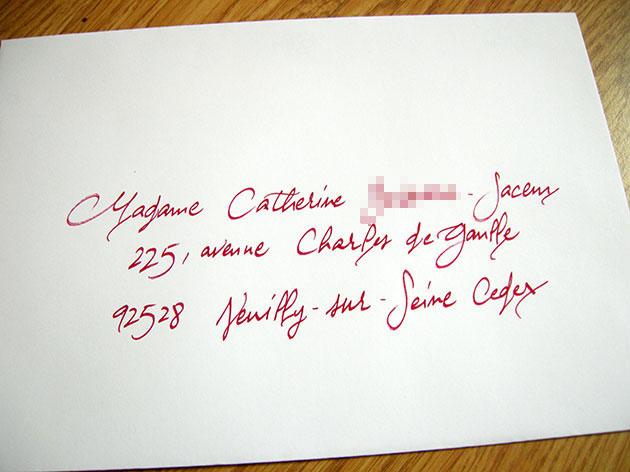 Madame Catherine - Sacem
225, avenue Charles de Gaulle
92528 Neuilly-sur-Seine Cedex